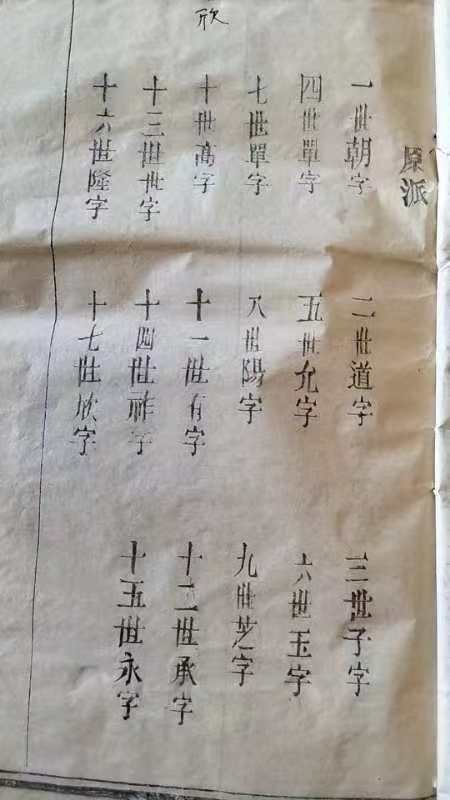 欣
原派
一世朝字
二世道字
三世子字
四世單字
五世允字
六世玉字
七世單字
八世陽字
九世芝字
十世萬字
十一世有字
十二世承字
十三世世字
十四世祚字
十五世永字
十六世隆字
十七世欣字